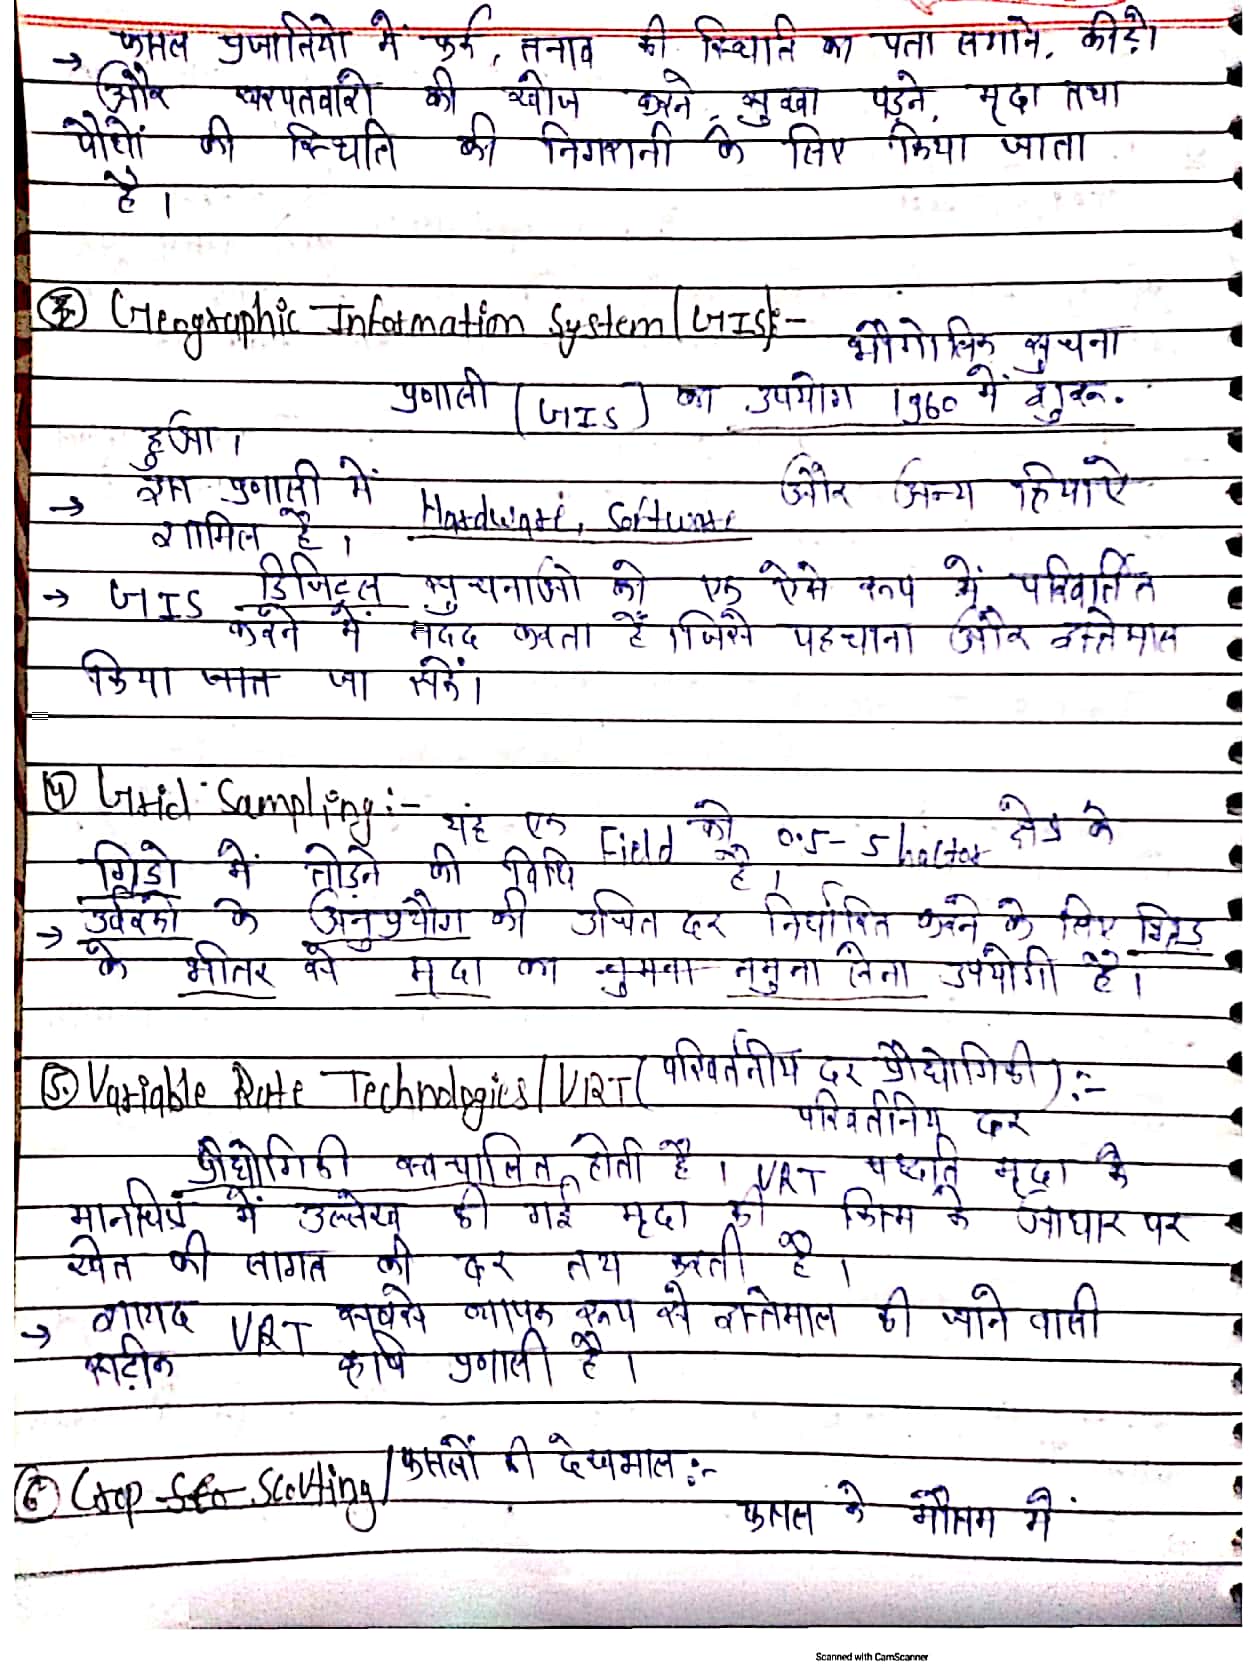 → फसल प्रजातियों में फर्क, तनाव की स्थिति का पता लगाने, कीड़ों
और खरपतवारों की खोज करने, सुखा पड़ने, मृदा तथा
पौधों की स्थिति की निगरानी के लिए किया जाता
है।
③ Geographic Information System (GIS):-
भौगोलिक सुचना
प्रणाली (GIS) का उपयोग 1960 में शुरू
हुआ।
→ इस प्रणाली में Hardware, Software और अन्य क्रियाऐं
शामिल है।
→ GIS डिजिटल सुचनाओं को एक ऐसे रूप में परिवर्तित
करने में मदद करता है जिसे पहचाना और इस्तेमाल
किया जा सकें।
④ Grid Sampling:-
यह एक Field को 0.5-5 hactor क्षेत्र के
ग्रिडो में तोड़ने की विधि है।
→ उर्वरको के अनुप्रयोग की उचित दर निर्धारित करने के लिए ग्रिड
के भीतर से मृदा का नमुना लेना उपयोगी है।
5. Variable Rate Technologies/VRT (परिवर्तनीय दर प्रौद्योगिकी):-
परिवर्तनिय दर
प्रौद्योगिकी स्वचालित होती है। VRT पध्दति मृदा के
मानचित्र में उल्लेख की गई मृदा की किस्म के आधार पर
खेत की लागत की दर तय करती है।
→ शायद VRT सबसे व्यापक रूप से इस्तेमाल की जाने वाली
सटीक कृषि प्रणाली है।
⑥ Crop Scouting/फसलों की देखभाल:-
फसल के मौसम में
Scanned with CamScanner